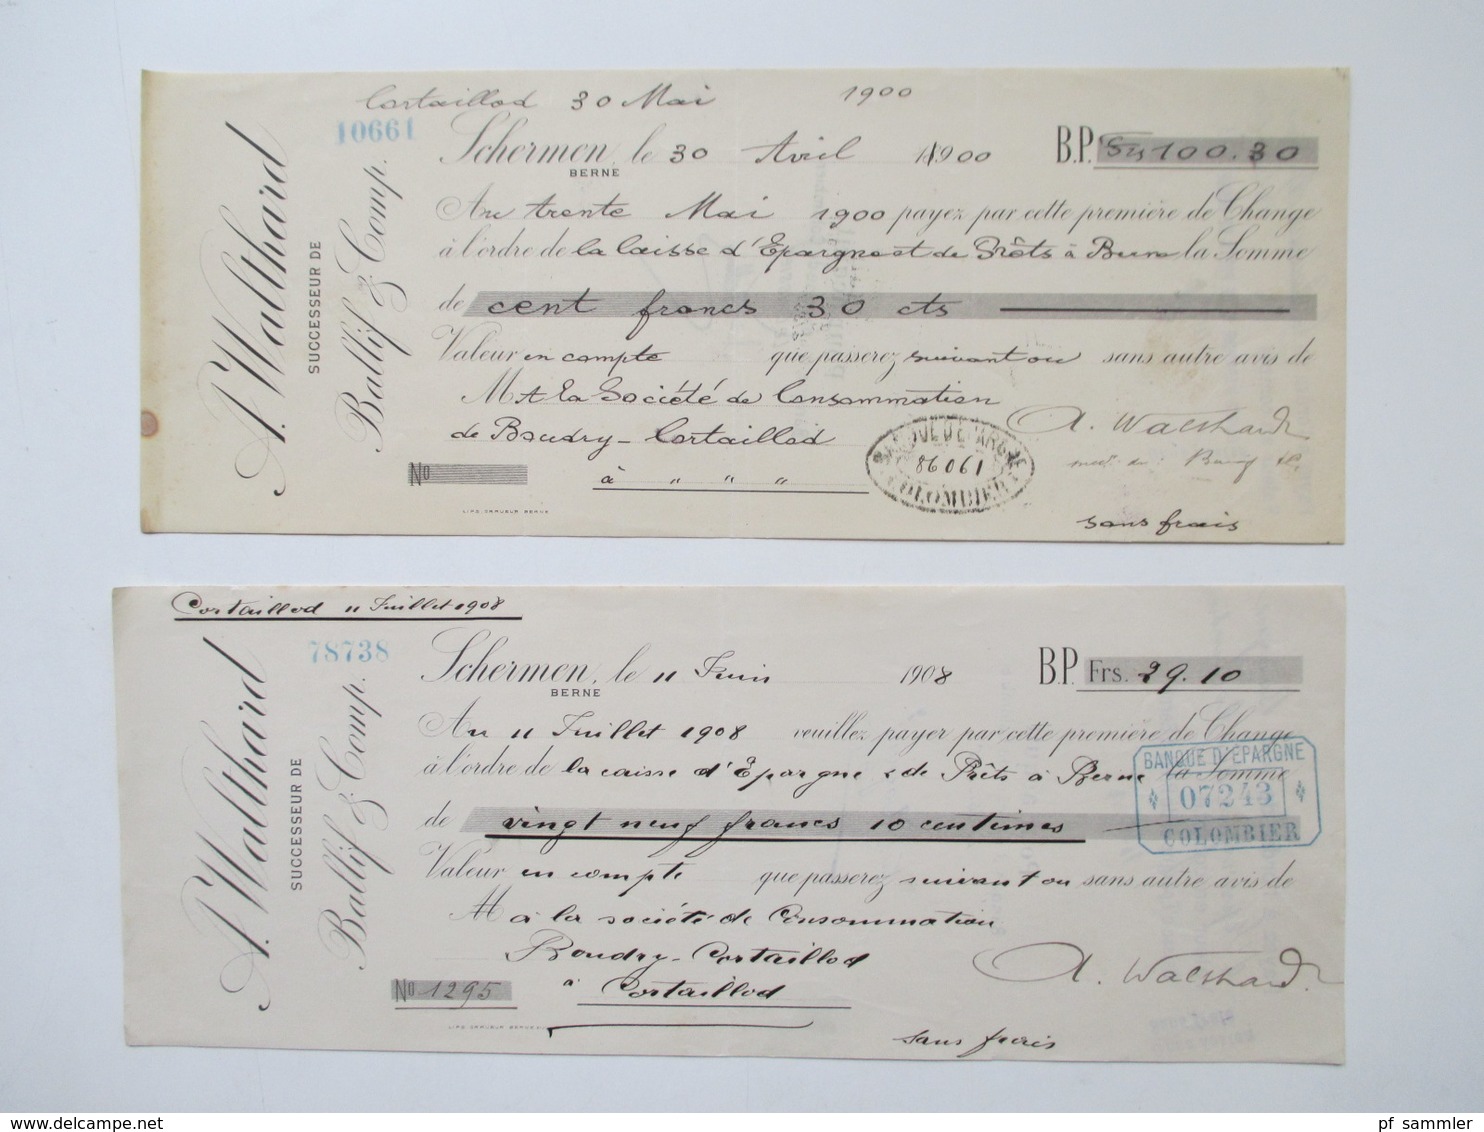 Cortaillod 30 Mai 1900
10661
A. Walthard
SUCCESSEUR DE
Ballif & Comp.
Schermen, le 30 Avril 1900 B.P. 100.30
BERNE
Au trente Mai 1900 payez par cette première de Change
à l'ordre de la Caisse d'Epargne et de Prêts à Berne la Somme
de cent francs 30 cts
Valeur en compte que passerez suivant ou sans autre avis de
M A la Société de Consommation
de Boudry-Cortaillod
A. Walthard
No
à " " "
BANQUE D'EPARGNE
86061
COLOMBIER
LIPS GRAVEUR BERNE
sans frais
Cortaillod 11 Juillet 1908
78738
A. Walthard
SUCCESSEUR DE
Ballif & Comp.
Schermen, le 11 Juin 1908 B.P. Frs. 29.10
BERNE
Au 11 Juillet 1908 veuillez payer par cette première de Change
à l'ordre de la caisse d'Epargne & de Prêts à Berne la Somme
de vingt neuf francs 10 centimes
BANQUE D'EPARGNE
07243
COLOMBIER
Valeur en compte que passerez suivant ou sans autre avis de
M à la société de Consommation
Boudry-Cortaillod
No 1295 à Cortaillod
A. Walthard.
LIPS GRAVEUR BERNE
sans frais
www.delcampe.net
pf_sammler